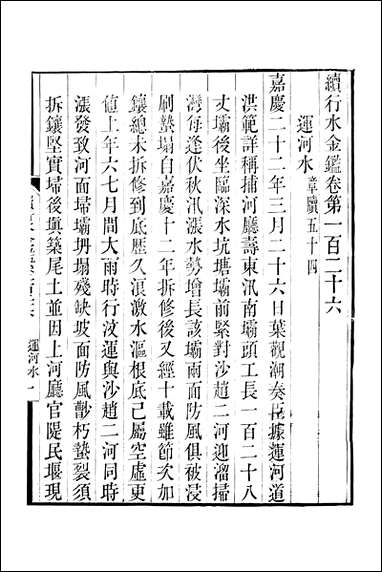 續行水金鑑卷第一百二十六
運河水 章牘五十四
嘉慶二十二年三月二十六日葉觀潮奏㨿據運河道
洪範詳稱捕河廳壽東汛南壩頭工長一百二十八
丈壩後坐臨深水坑塘壩前緊對沙趙二河迎溜掃
灣每逢伏秋汛漲水勢增長該壩兩面防風俱被浸
刷蟄塌自嘉慶十二年拆修後又經十載雖節次加
鑲總未拆修到底歷久滇激水漚根底已屬空虛更
値上年六七月間大雨時行汶運與沙趙二河同時
漲發致河面埽壩坍塌殘缺坡面防風霾朽蟄裂須
拆鑲堅實埽後與築尾土並因上河廳官隄民堰現
運河水 一